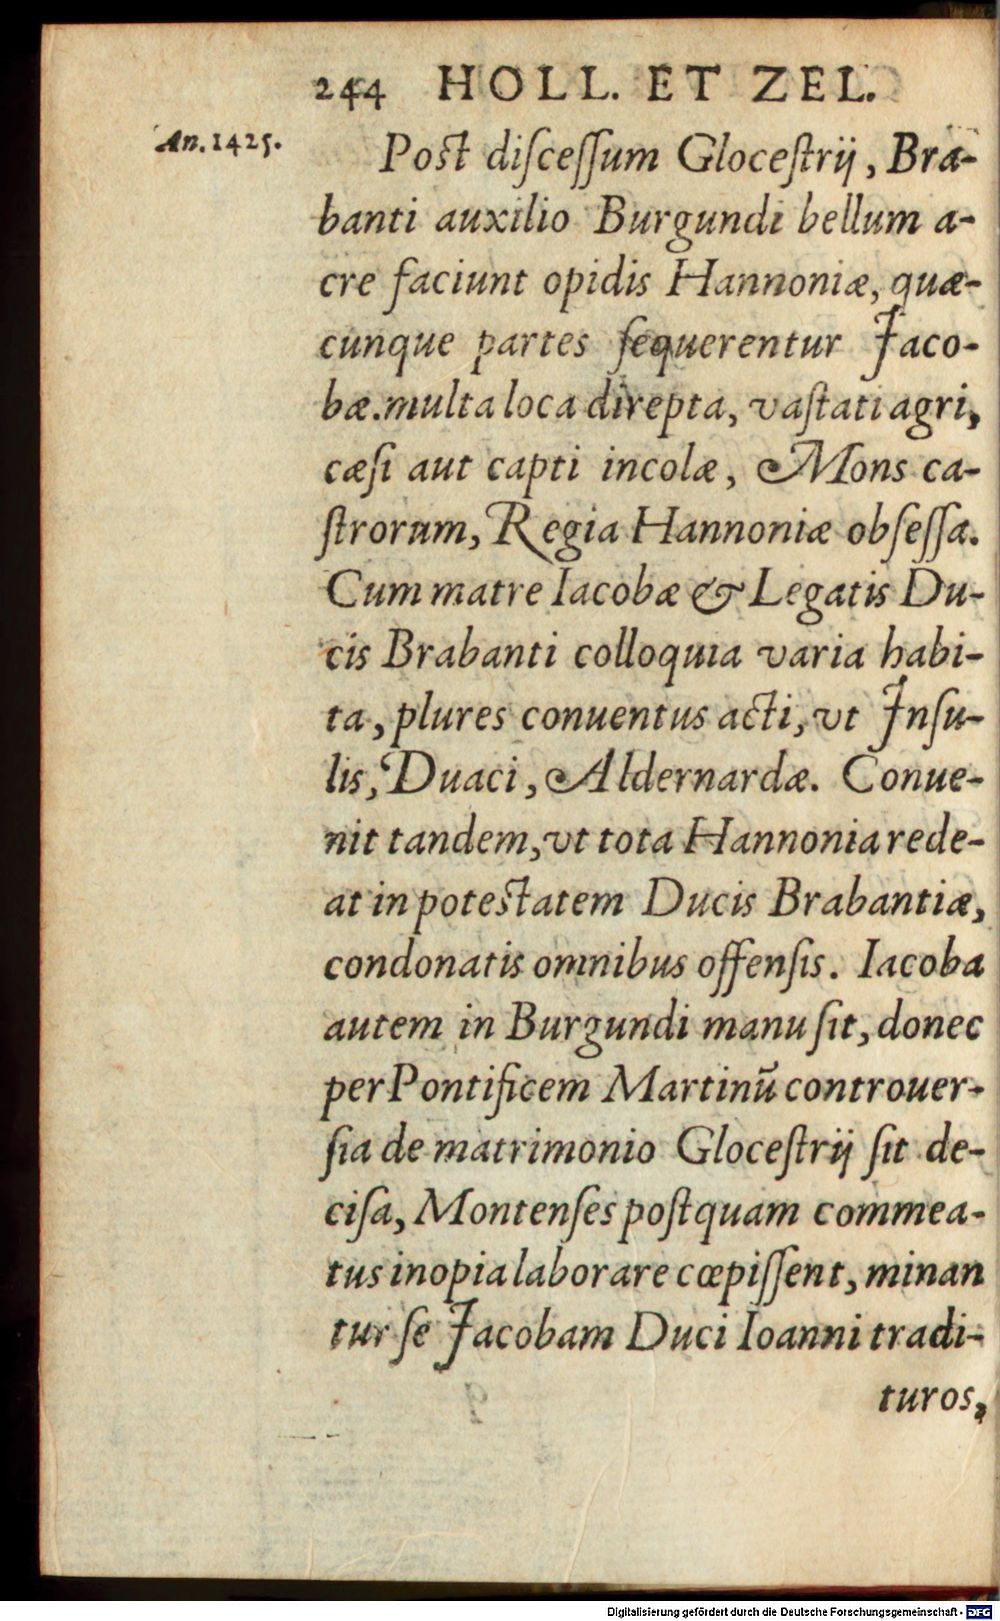 244 HOLL. ET ZEL.
An. 1425.
Post diſceſſum Gloceſtrij, Bra-
banti auxilio Burgundi bellum a-
cre faciunt opidis Hannoniæ, quæ-
cunque partes ſequerentur Jaco-
bæ. multa loca direpta, vaſtati agri,
cæſi aut capti incolæ, Mons ca-
ſtrorum, Regia Hannoniæ obſeſſa.
Cum matre Iacobæ & Legatis Du-
cis Brabanti colloquia varia habi-
ta, plures conuentus acti, vt Jnſu-
lis, Duaci, Aldernardæ. Conue-
nit tandem, vt tota Hannonia rede-
at in poteſtatem Ducis Brabantiæ,
condonatis omnibus offenſis. Iacoba
autem in Burgundi manu ſit, donec
per Pontificem Martinū controuer-
ſia de matrimonio Gloceſtrij ſit de-
ciſa, Montenſes poſtquam commea-
tus inopia laborare cœpiſſent, minan
tur ſe Jacobam Duci Ioanni tradi-
turos,
Digitalisierung gefördert durch die Deutsche Forschungsgemeinschaft - DFG